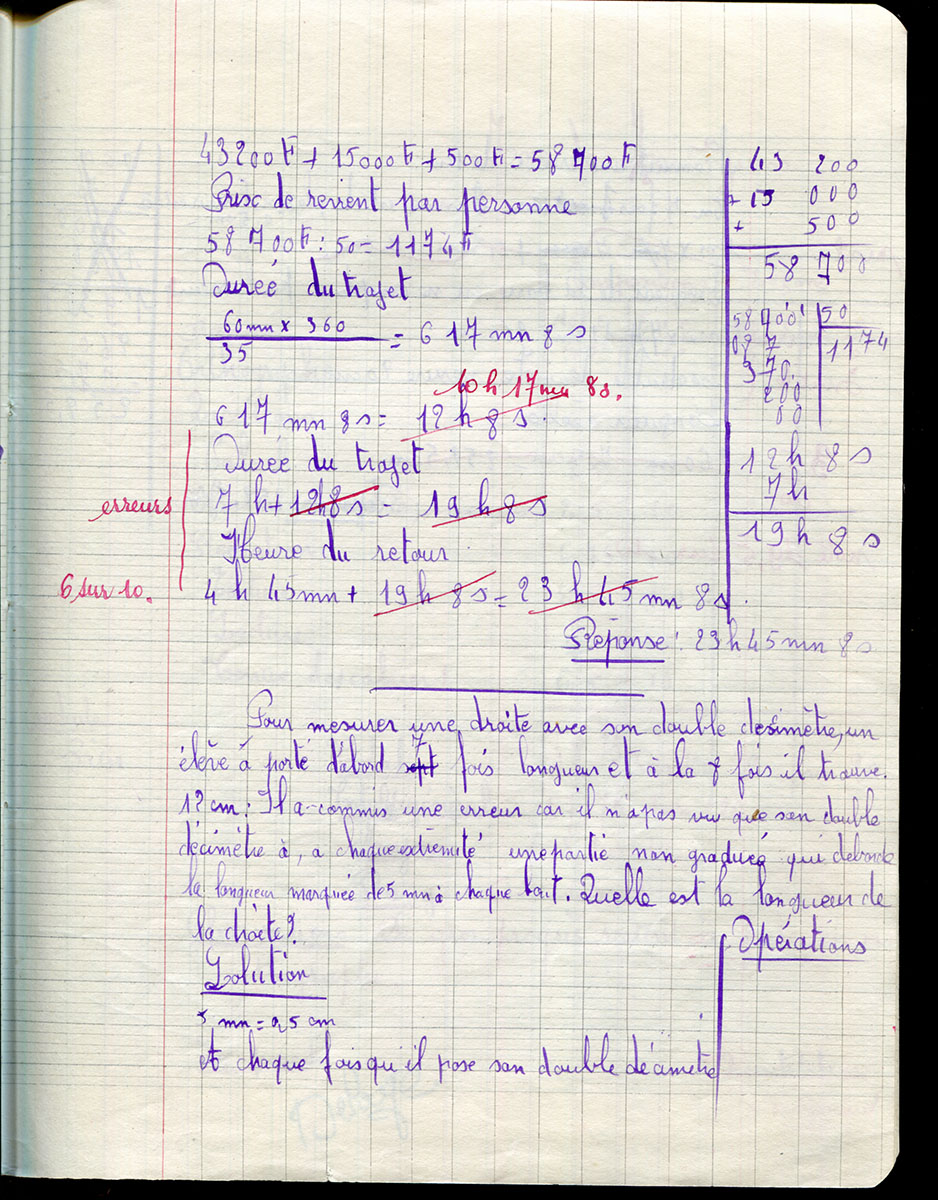 43200F + 15000F + 500F = 58 700F
Prix de revient par personne
58 700F : 50 = 1174F
Durée du trajet
60mn x 360
35
= 6 17 mn 8 s
10 h 17 mn 8s.
6 17 mn 8s = 12 h 8 s.
Durée du trajet
7 h + 12h8s = 19 h 8 s
erreurs
Heure du retour
6 sur 10.
4 h 45mn + 19 h 8 s = 23 h 45 mn 8s.
Réponse : 23h45mn 8s
43 200
+ 15 000
+ 500
58 700
58700 50
087 1174
370.
200
00
12h 8s
7h
19h 8s
Pour mesurer une droite avec son double desimètre, un
élève à porté d'abord sept 7 fois longueur et à la 8 fois il trouve.
12 cm : Il a commis une erreur car il n'a pas vu que son double
décimètre à, a chaque extrémité une partie non graduée qui déborde
la longueur marquée de 5 mn à chaque bait. Quelle est la longueur de
la droite?
Opérations
Solution
5 mn = 0,5 cm
A chaque fois qu'il pose son double décimètre